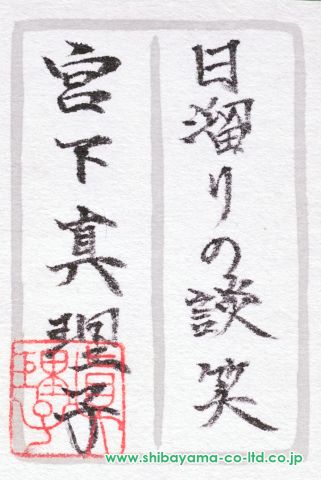 日溜りの談笑
宮下真理子
真理子
www.shibayama-co-ltd.co.jp